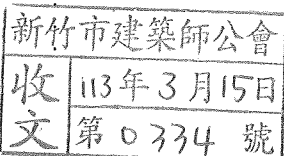 新竹市建築師公會
收文
113年3月15日
第0334號